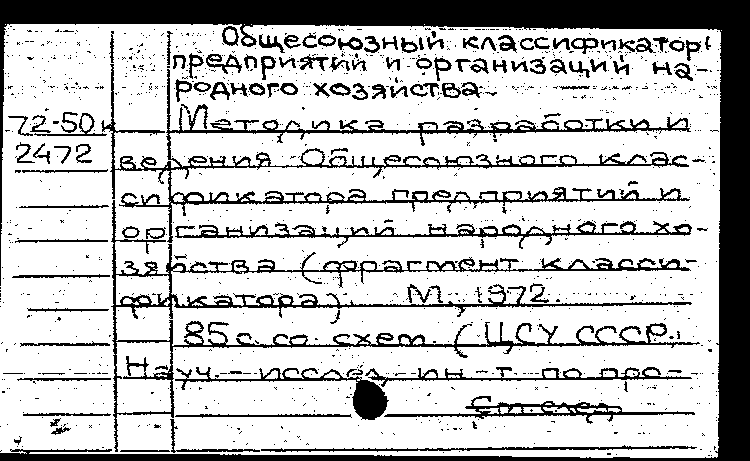 Общесоюзный классификатор
предприятий и организаций на-
родного хозяйства.
72-50к Методика разработки и
2472 ведения Общесоюзного клас-
сификатора предприятий и
организаций народного хо-
зяйства (фрагмент класси-
фикатора). М., 1972.
85 с. со схем. (ЦСУ СССР.
Науч.-исслед. ин-т по про-
См. след.